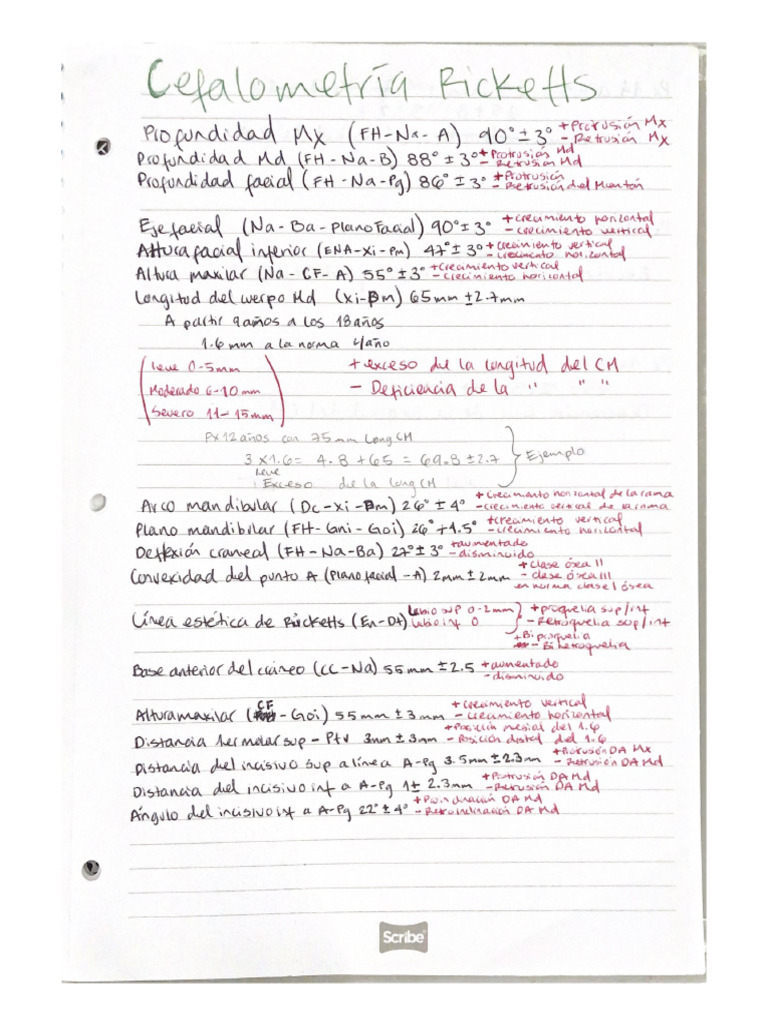 Cefalometría Ricketts
Profundidad Mx (FH-Na-A) 90° ± 3° + Protrusión Mx
- Retrusión Mx
Profundidad Md (FH-Na-B) 88° ± 3° + Protrusión Md
- Retrusión Md
Profundidad facial (FH-Na-Pg) 86° ± 3° + Protrusión
- Retrusión del Mentón
Eje facial (Na-Ba-Plano Facial) 90° ± 3° + crecimiento horizontal
- crecimiento vertical
Altura facial inferior (ENA-Xi-Pm) 47° ± 3° + crecimiento vertical
- crecimiento horizontal
Altura maxilar (Na-CF-A) 55° ± 3° + crecimiento vertical
- crecimiento horizontal
Longitud del cuerpo Md (Xi-Pm) 65mm ± 2.7mm
A partir 9 años a los 18 años
1.6 mm a la norma c/año
Leve 0-5mm
Moderado 6-10mm
Severo 11-15mm
+ exceso de la longitud del CM
- Deficiencia de la " " "
Px 12 años con 75mm Long CM
3 x 1.6 = 4.8 + 65 = 69.8 ± 2.7
Leve
Exceso de la long CM
Ejemplo
Arco mandibular (Dc-Xi-Pm) 26° ± 4° + crecimiento horizontal de la rama
- crecimiento vertical de la rama
Plano mandibular (FH-Gni-Goi) 26° + 4.5° + creamiento vertical
- crecimiento horizontal
Deflexión craneal (FH-Na-Ba) 27° ± 3° + aumentado
- disminuido
Convexidad del punto A (Plano facial -A) 2mm ± 2mm + clase ósea II
- clase ósea III
en norma clase I ósea
Línea estética de Ricketts (En-Dt) Labio sup 0-2mm
Labio inf 0
+ proquelia sup/inf
- Retroquelia sup/inf
+ Biproquelia
- Biretroquelia
Base anterior del cráneo (CC-Na) 55mm ± 2.5 + aumentado
- disminuido
Altura maxilar (CF-Goi) 55mm ± 3mm + crecimiento vertical
- crecimiento horizontal
Distancia 1er molar sup - Ptv 3mm ± 3mm + Posición mesial del 1.6
- Posición distal del 1.6
Distancia del incisivo sup a línea A-Pg 3.5mm ± 2.3mm + Protrusión DA Mx
- Retrusión DA Md
Distancia del incisivo inf a A-Pg 1 ± 2.3mm + Protrusión DA Md
- Retrusión DA Md
Ángulo del incisivo inf a A-Pg 22° ± 4° + Proinclinación DA Md
- Retroinclinación DA Md
Scribe